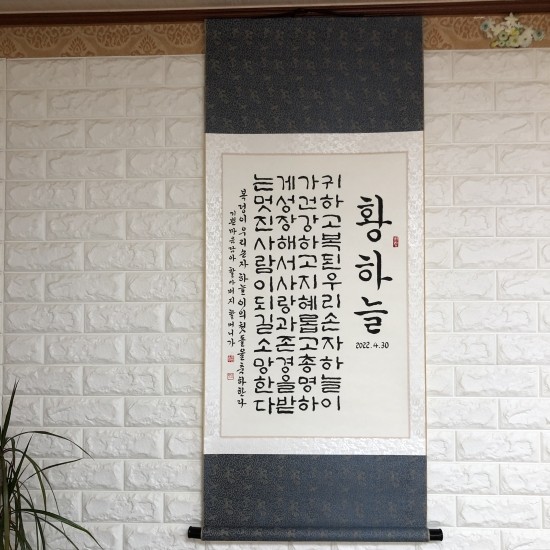 황하늘
2022.4.30
귀하고복된우리손자하늘이
가건강하고지혜롭고총명하
게성장해서사랑과존경을받
는멋진사람이되길소망한다
복덩이 우리손자 하늘이의 첫돌을 축하한다
기쁜마음담아 할아버지 할머니가